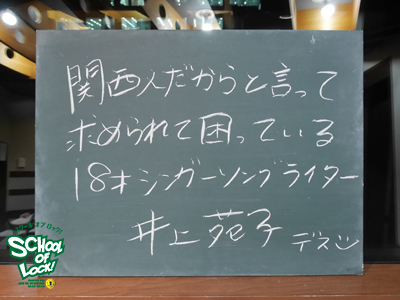 関西人だからと言って
求められて困っている
18才シンガーソングライター
井上苑子 デス
SCHOOL
OF
LOCK!